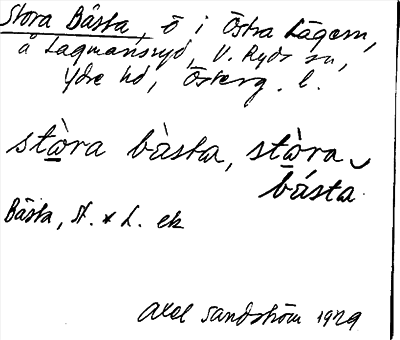 Stora Båsta, ö i Östra Lägern,
å Lagmansryd, V. Ryds sn,
Ydre hd, Österg. l.
stàra bàsta, stàra
básta
Båsta, St. x L. ek
Axel Sandström 1929